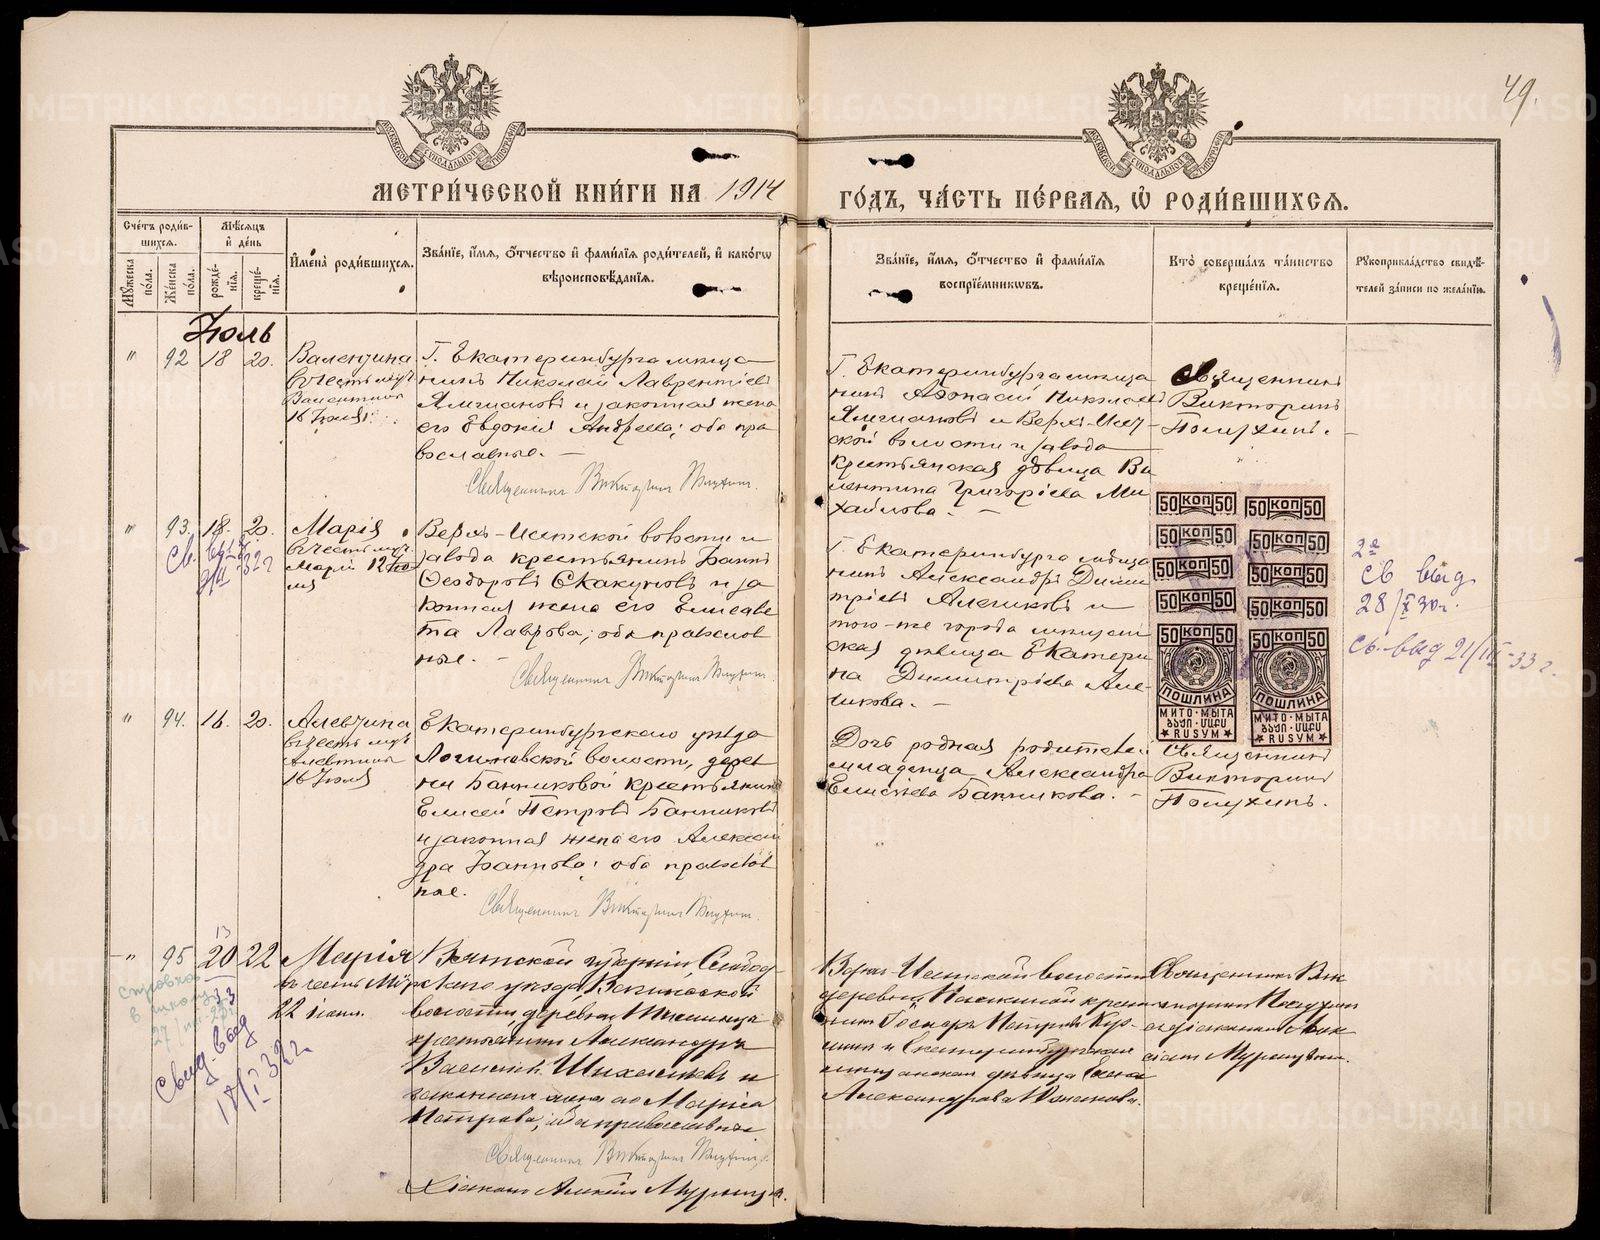 49.
МЕТРИ́ЧЕСКОЙ КНИ́ГИ НА 1914 ГО́ДЪ, ЧА́СТЬ ПЕ́РВАЯ, Ѡ РОДИ́ВШИХСЯ.
Сче́тъ роди́вшихся.
Му́жеска по́ла.
Же́нска по́ла.
Мѣ́сяцъ и́ де́нь
рожде́нія.
креще́нія.
И҆мена̀ роди́вшихся.
Зва́ніе, и҆́мя, ѻ҆́тчество и҆ фами́лія роди́телей, и҆ како́гѡ
вѣроисповѣ́данія.
Зва́ніе, и҆́мя, ѻ҆́тчество и҆ фами́лія
воспріе́мниковъ.
Кто̀ соверша́лъ та́инство
креще́нія.
Рꙋкоприкла́дство свидѣ́-
телей за́писи по жела́нію.
Іюль
" 92 18 20.
Валентина
въ честь муч.
Валентина
16 Іюля.
Г. Екатеринбурга мѣща
нинъ Николай Лаврентіевъ
и законная жена
его Евдокія Андреева; оба пра
вославные. —
Священникъ Викторинъ Полухинъ.
Г. Екатеринбурга мѣща
нинъ Афонасій Николаевъ
и Верхъ-Исет-
ской волости и завода
крестьянская дѣвица Ва
лентина Григоріева Ми
хайлова. —
Священникъ
Викторинъ
Полухинъ.
" 93. 18. 20.
Марія
въ честь муч.
Маріи 12 Ію
ля
Св. выд.
Верхъ-Исетской волости и
завода крестьянинъ Іоаннъ
Ѳеодоровъ Скакуновъ и за
конная жена его Елисаве
та Лаврова; оба православ
ные. —
Священникъ Викторинъ Полухинъ.
Г. Екатеринбурга мѣща
нинъ Александръ Дими
тріевъ Алениковъ и
того-же города мѣщан
ская дѣвица Екатери
на Димитріева Але-
никова. —
50 КОП 50
50 КОП 50
50 КОП 50
50 КОП 50
50 КОП 50
50 КОП 50
50 КОП 50
50 КОП 50
50 КОП 50
50 КОП 50
ПОШЛИНА
ПОШЛИНА
МИТО·МЫТА
RUSYM
МИТО·МЫТА
RUSYM
2е
св выд.
28/X 30г.
Св. выд 21/III-33 г.
" 94. 16. 20.
Алевтина
въ честь муч.
Алевтины
16 Іюля
Екатеринбургскаго уѣзда
Логиновской волости, дерев
ни Банниковой крестьянинъ
Елисей Петровъ Банниковъ
и законная жена его Алексан
дра Іоаннова; оба православ
ные.
Священникъ Викторинъ Полухинъ.
Дочь родная родителей
младенца Александра
Елисѣева Банникова. —
Священникъ
Викторинъ
Полухинъ.
" 95 20 22
13
Марія
въ честь Мѵр
22 іюля.
Справка
в школу
Свид. выд
17/I 32 г.
Вятской губерніи, Слобод-
скаго уѣзда,
волости, деревни
крестьянинъ Александръ
Василіевъ и
законная жена его Марія
Петрова, оба православные
Священникъ Викторинъ Полухинъ.
Діаконъ Алексій
Верхъ-Исетской волости
деревни крестья
нинъ Петровъ
и Екатеринбургская
мѣщанская дѣвица
Александрова
Священникъ Вик
торинъ Полухинъ
съ діакономъ Алек
сіемъ